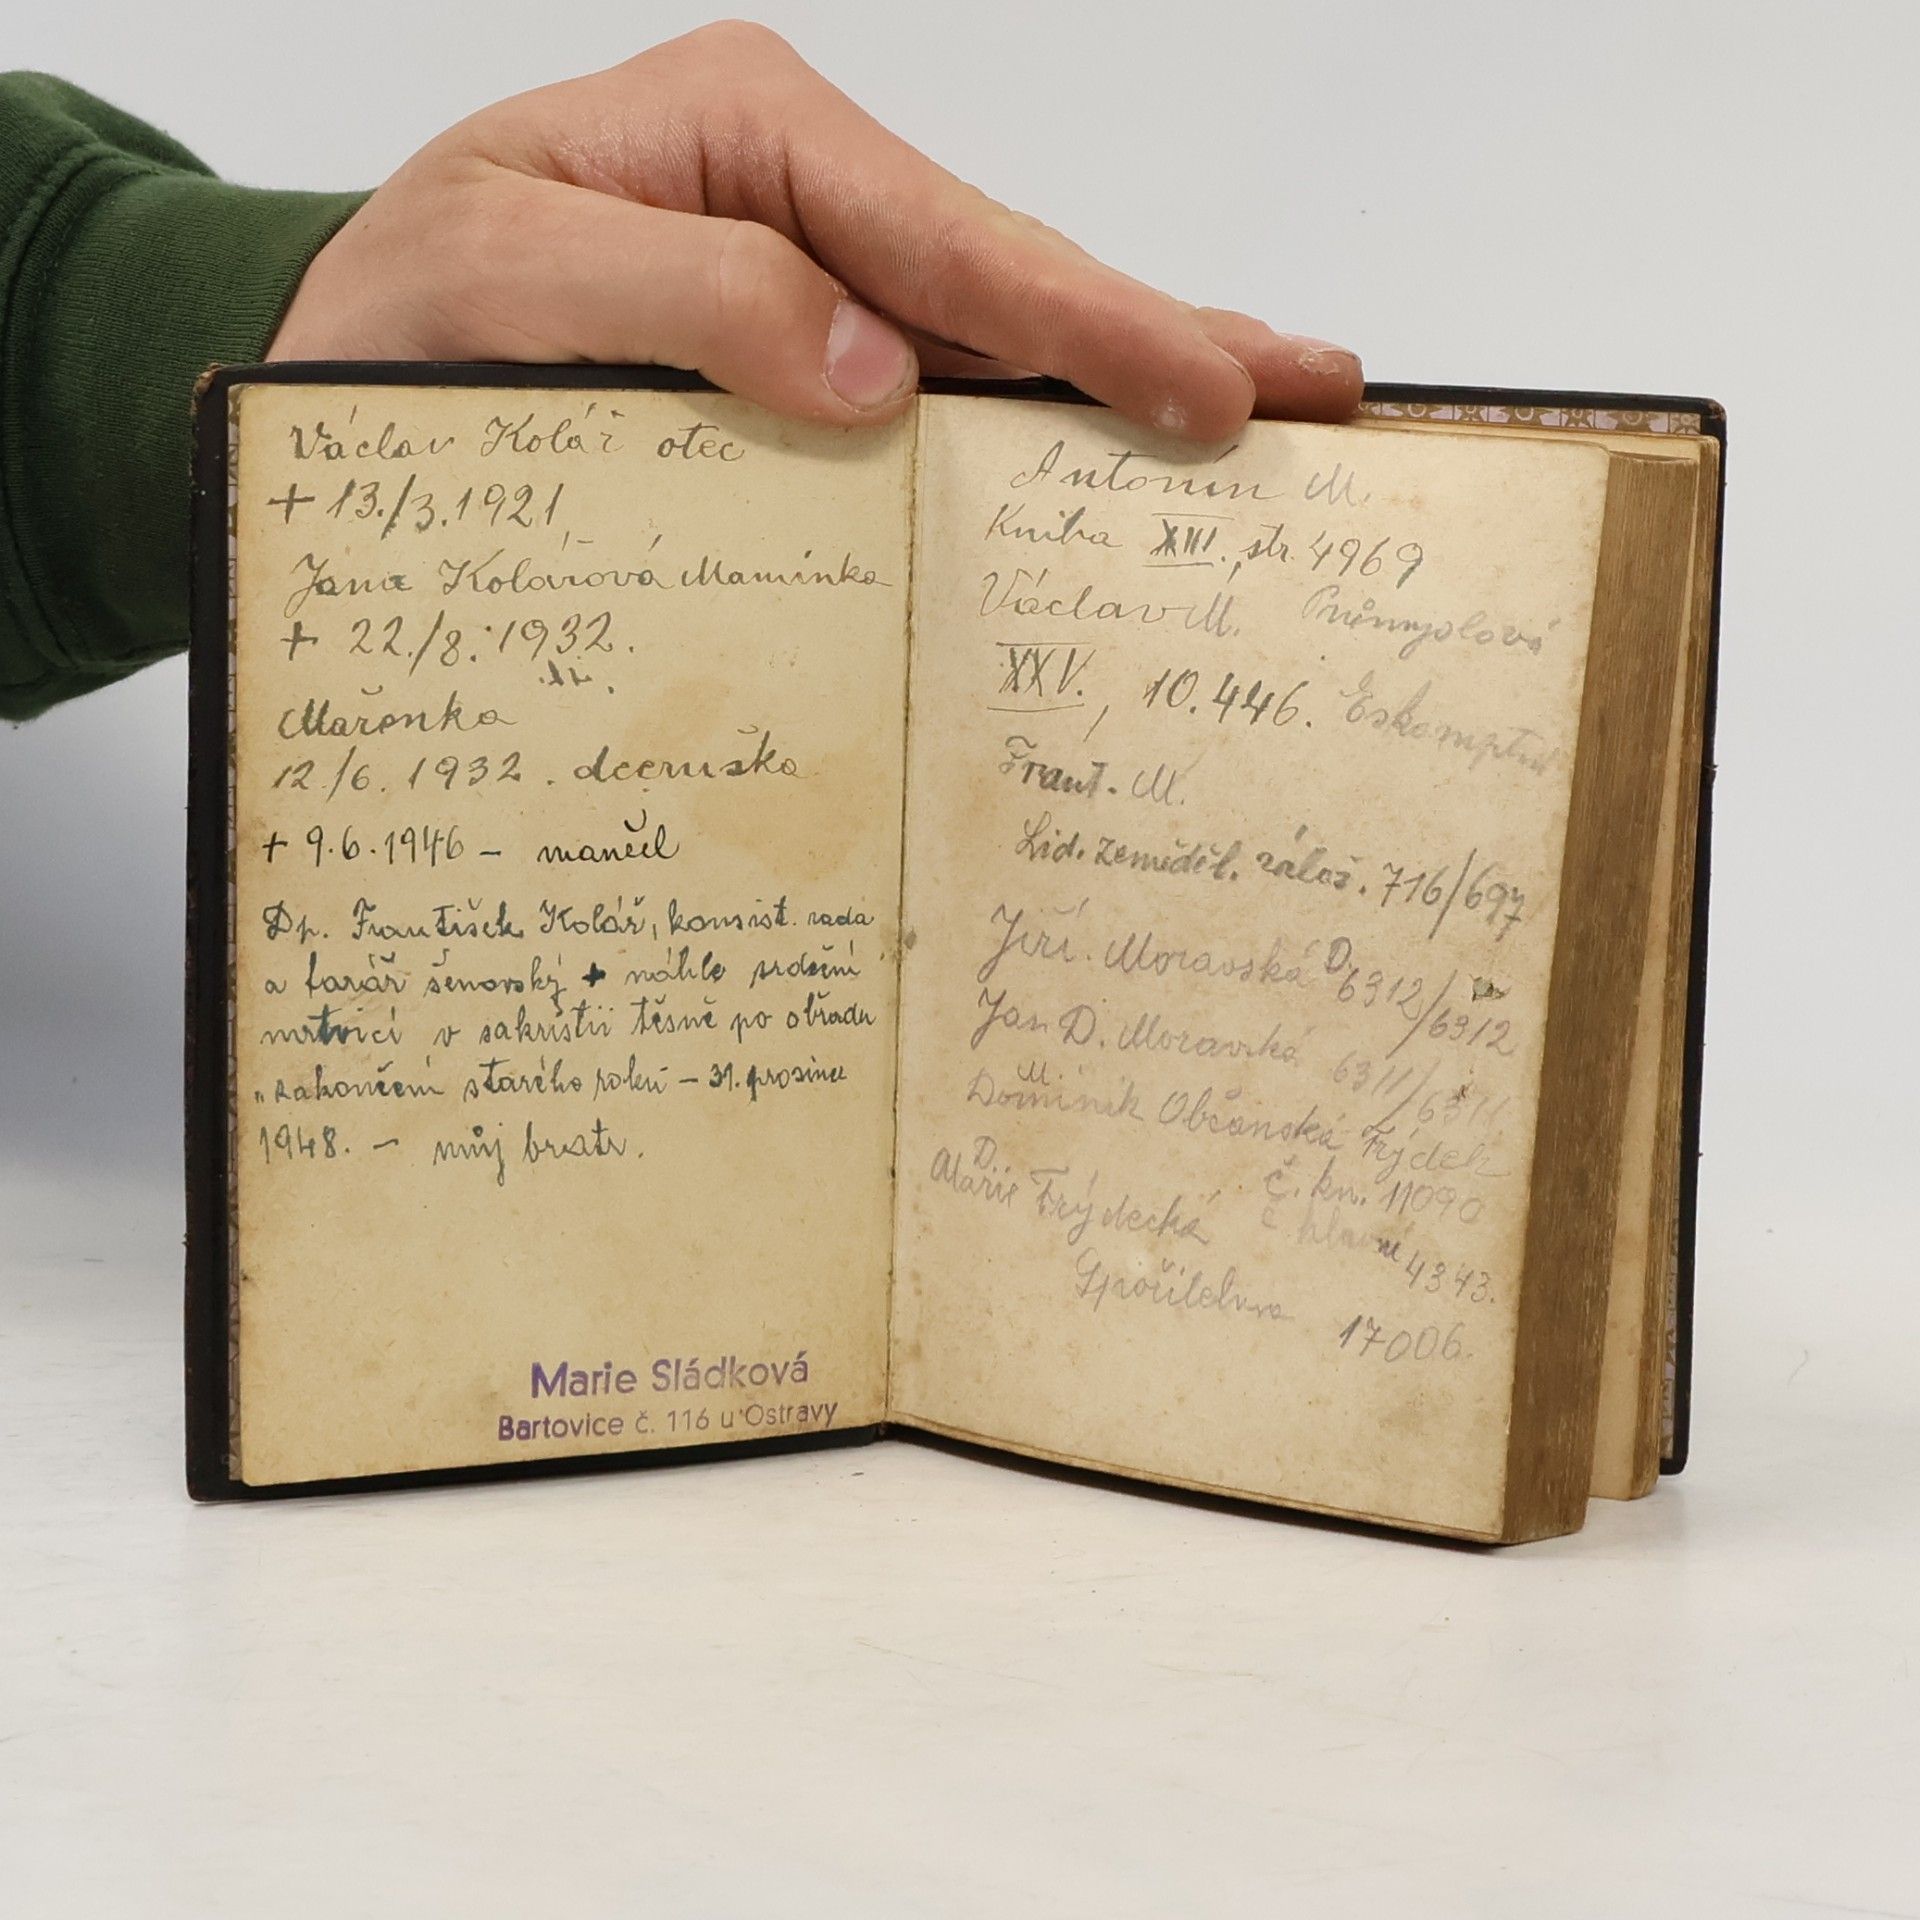 Václav Kolář otec
+ 13./3.1921
Jana Kolářová Maminka
+ 22./8. 1932.
Mařenka
12/6. 1932. dceruška
+ 9.6.1946 – manžel
Dp. František Kolář, konsist. rada
a farář šenovský + náhle srdeční
mrtvicí v sakristii těsně po obřadu
"zakončení starého roku – 31. prosince
1948. – můj bratr.
Marie Sládková
Bartovice č. 116 u Ostravy
Antonín M.
Kniha XIII., str. 4969
Václav M. Průmyslová
XXV., 10.446. Eskomptní
Frant. M.
Lid. zeměděl. zálož. 716/697
Jiří. Moravská D. 6312/6312
Jan D. Moravská 6311/6311
M.
Dominik Občanská Frýdek
č. kn. 11090
D.
Marie Frýdecká č hlavní 4343.
Spořitelna 17006.